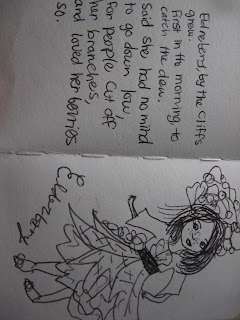 by the cliffs
grow.
First in the morning to
catch the dew.
Said she had no mind
to go down low,
for people cut off
her branches,
and loved her berries
so.
Elderberry